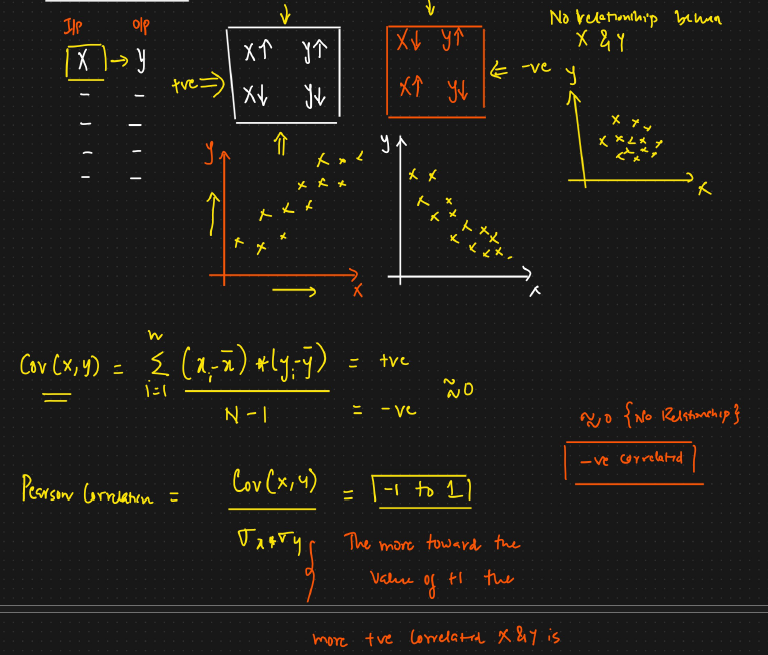 I/p O/p
X → y
+ve ⇒
X↑ y↑
X↓ y↓
X↓ y↑
X↑ y↓
⇐ -ve
No relationship between
X & y
y
X
y
X
y
x
Cov(x,y) = n Σ i=1 (xi-x̄) * (yi-ȳ) / N-1 = +ve
= -ve
≈ 0
≈ 0 {No Relationship}
-ve correlated
Pearson Correlation = Cov(x,y) / σx * σy = -1 to 1
The more toward the
value of +1 the
more +ve correlated X & y is